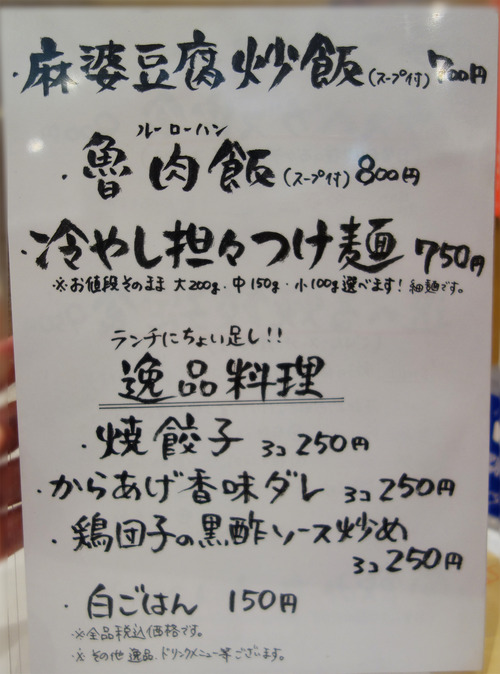 ・麻婆豆腐炒飯(スープ付)700円
ルーローハン
・魯肉飯(スープ付)800円
・冷やし担々つけ麺 750円
※お値段そのまま 大200g・中150g・小100g選べます! 細麺です。
ランチにちょい足し!!
逸品料理
・焼餃子 3コ250円
・からあげ香味ダレ 3コ250円
・鶏団子の黒酢ソース炒め
3コ250円
・白ごはん 150円
※全品税込価格です。
※その他逸品、ドリンクメニュー等ございます。